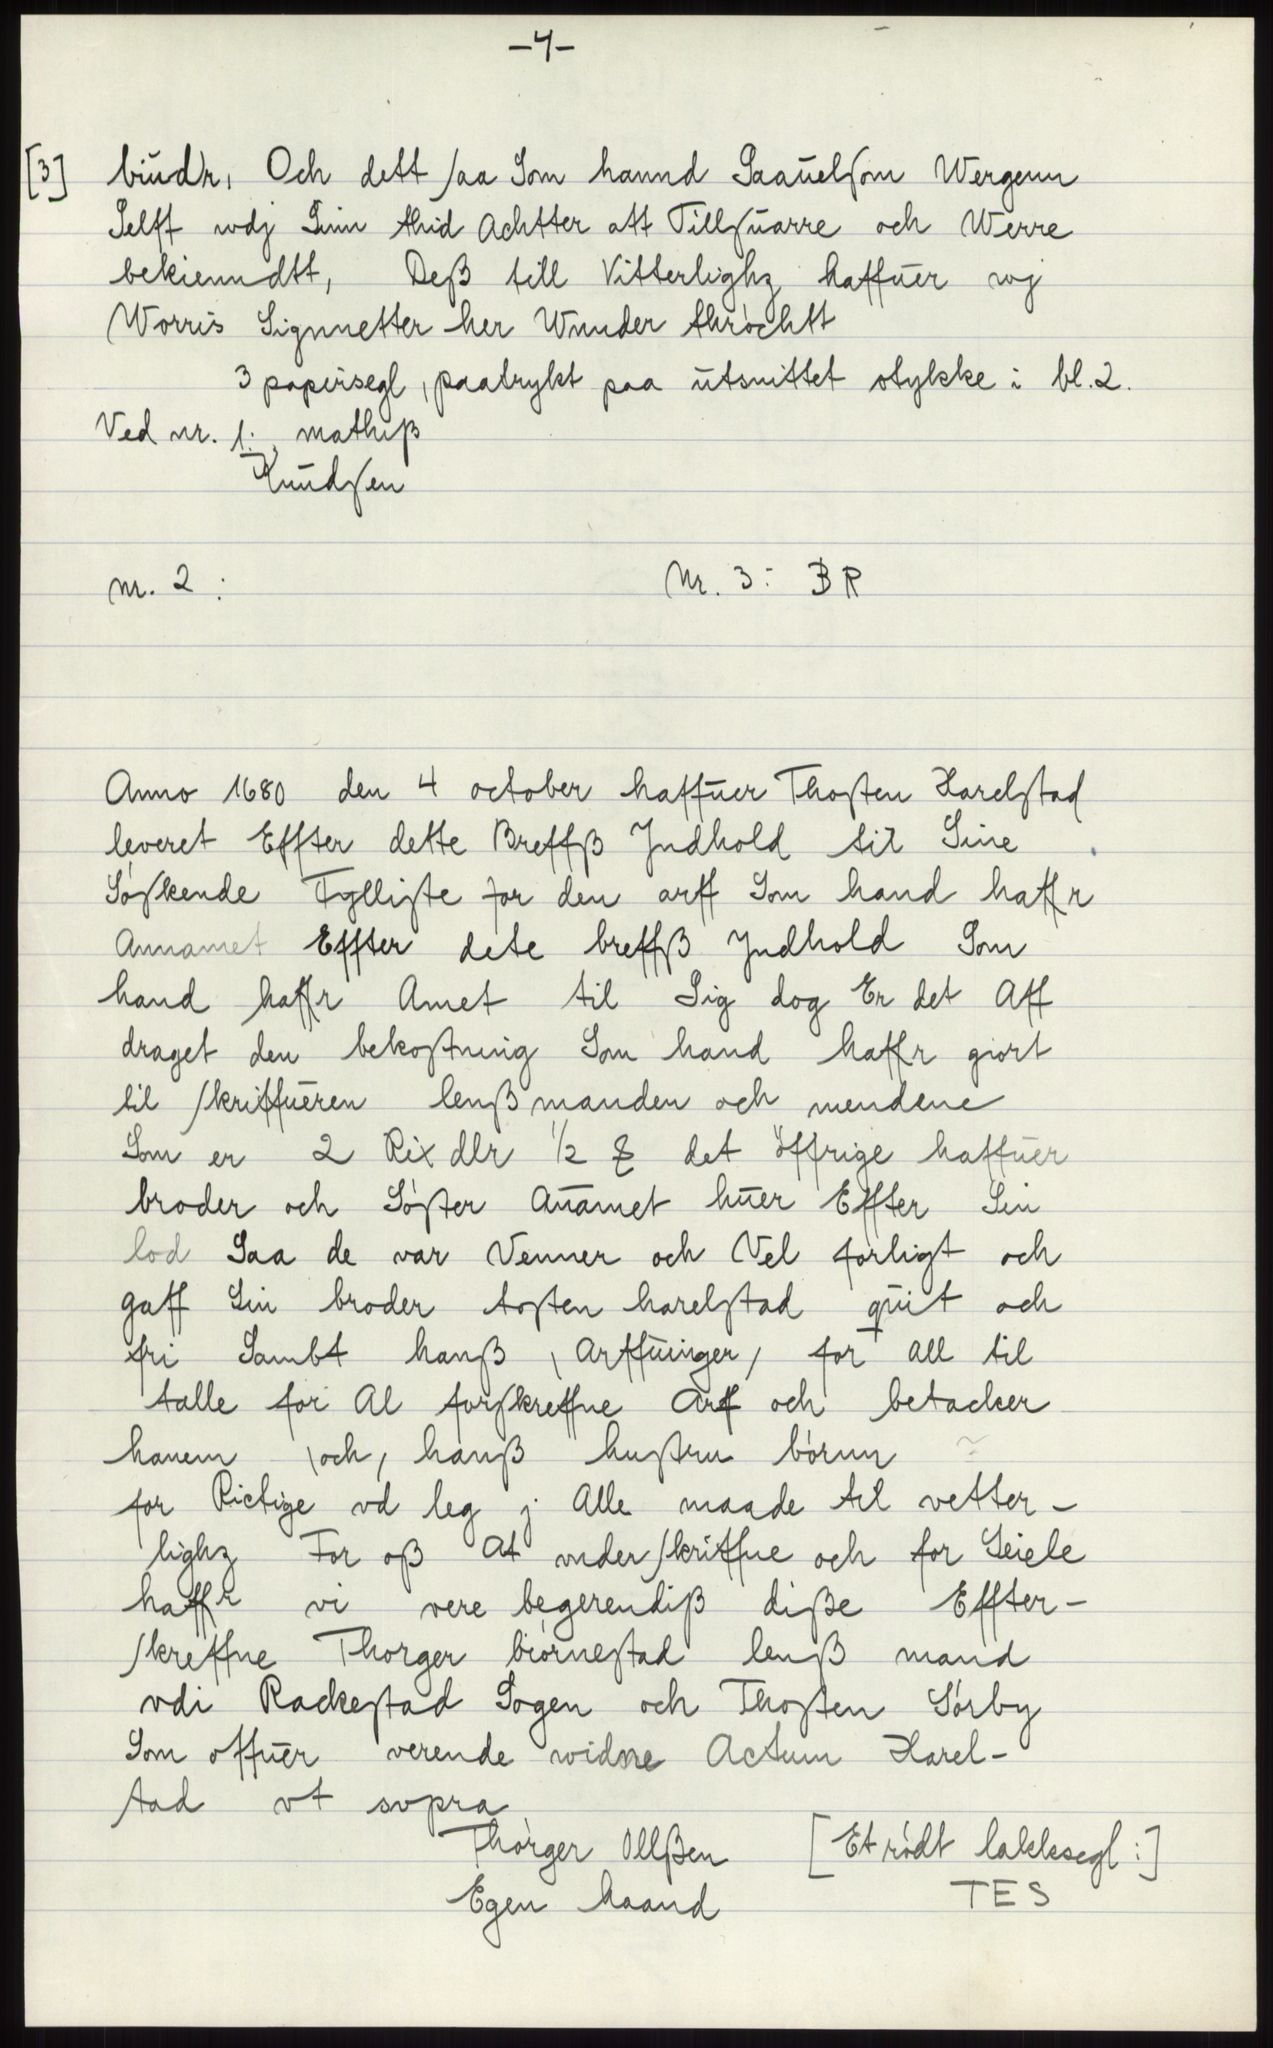 -4-
[3] biud'r, Och dett saa Som hannd Saauelsom Wergenn
Selff wdj Sinn thid Achtter att Tillsuarre och Werre
bekienndtt, Deß till Vitterlighz haffuer wj
Worris Signnetter her Wnnder thröchtt
3 papirsegl, paatrykt paa utsnittet stykke i bl. 2.
Ved nr. 1: mathiß
Knudsen
nr. 2: Nr. 3: BR
Anno 1680 den 4 october haffuer Thosten Harelstad
leveret Effter dette Breffß Jndhold til Sine
Söskende Fylliste for den arff Som hand haffr
Annamet Effter dete breffß Jndhold Som
hand haffr Amet til Sig dog Er det Aff
draget den bekostning Som hand haffr giort
til skriffueren lenßmanden och mendene
Som er 2 Rix dlr ½ det öffrige haffuer
broder och Söster Anamet huer Effter Sin
lod Saa de var Venner och Vel forligt och
gaff Sin broder tosten harelstad quit och
fri Sambt hanß \Arffuinger/ for all til
talle for Al forskreffne Arf och betacker
hanem \och/ hanß hustru börnn
for Rictige vd leg j Alle maade til vetter-
lighz For oß At vnderskriffue och for Seiele
haffr vi vere begerendiß diße Effter-
skreffne Thorger biörnestad lenß mand
vdi Rackestad Sogen och Thosten Sörby
Som offuer verende widne Actum Harel-
stad vt svpra
Thorger Ollßen [Et rödt lakksegl:]
Egen haand TES